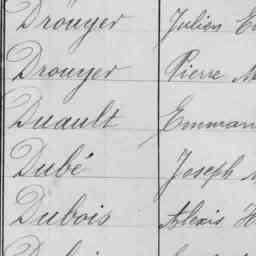 Drouyer Julien
Drouyer Pierre
Duault Emman
Dubé Joseph
Dubois Alexis H